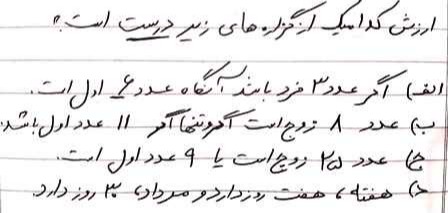 ارزش کدامیک از گزاره های زیر درست است؟
الف) اگر عدد ۳ فرد باشد آنگاه عدد ۶ اول است.
ب) عدد ۸ زوج است اگر و تنها اگر ۱۱ عدد اول باشد.
ج) عدد ۲۵ زوج است یا ۹ عدد اول است.
د) هفته، هفت روز دارد و مرداد، ۳۰ روز دارد